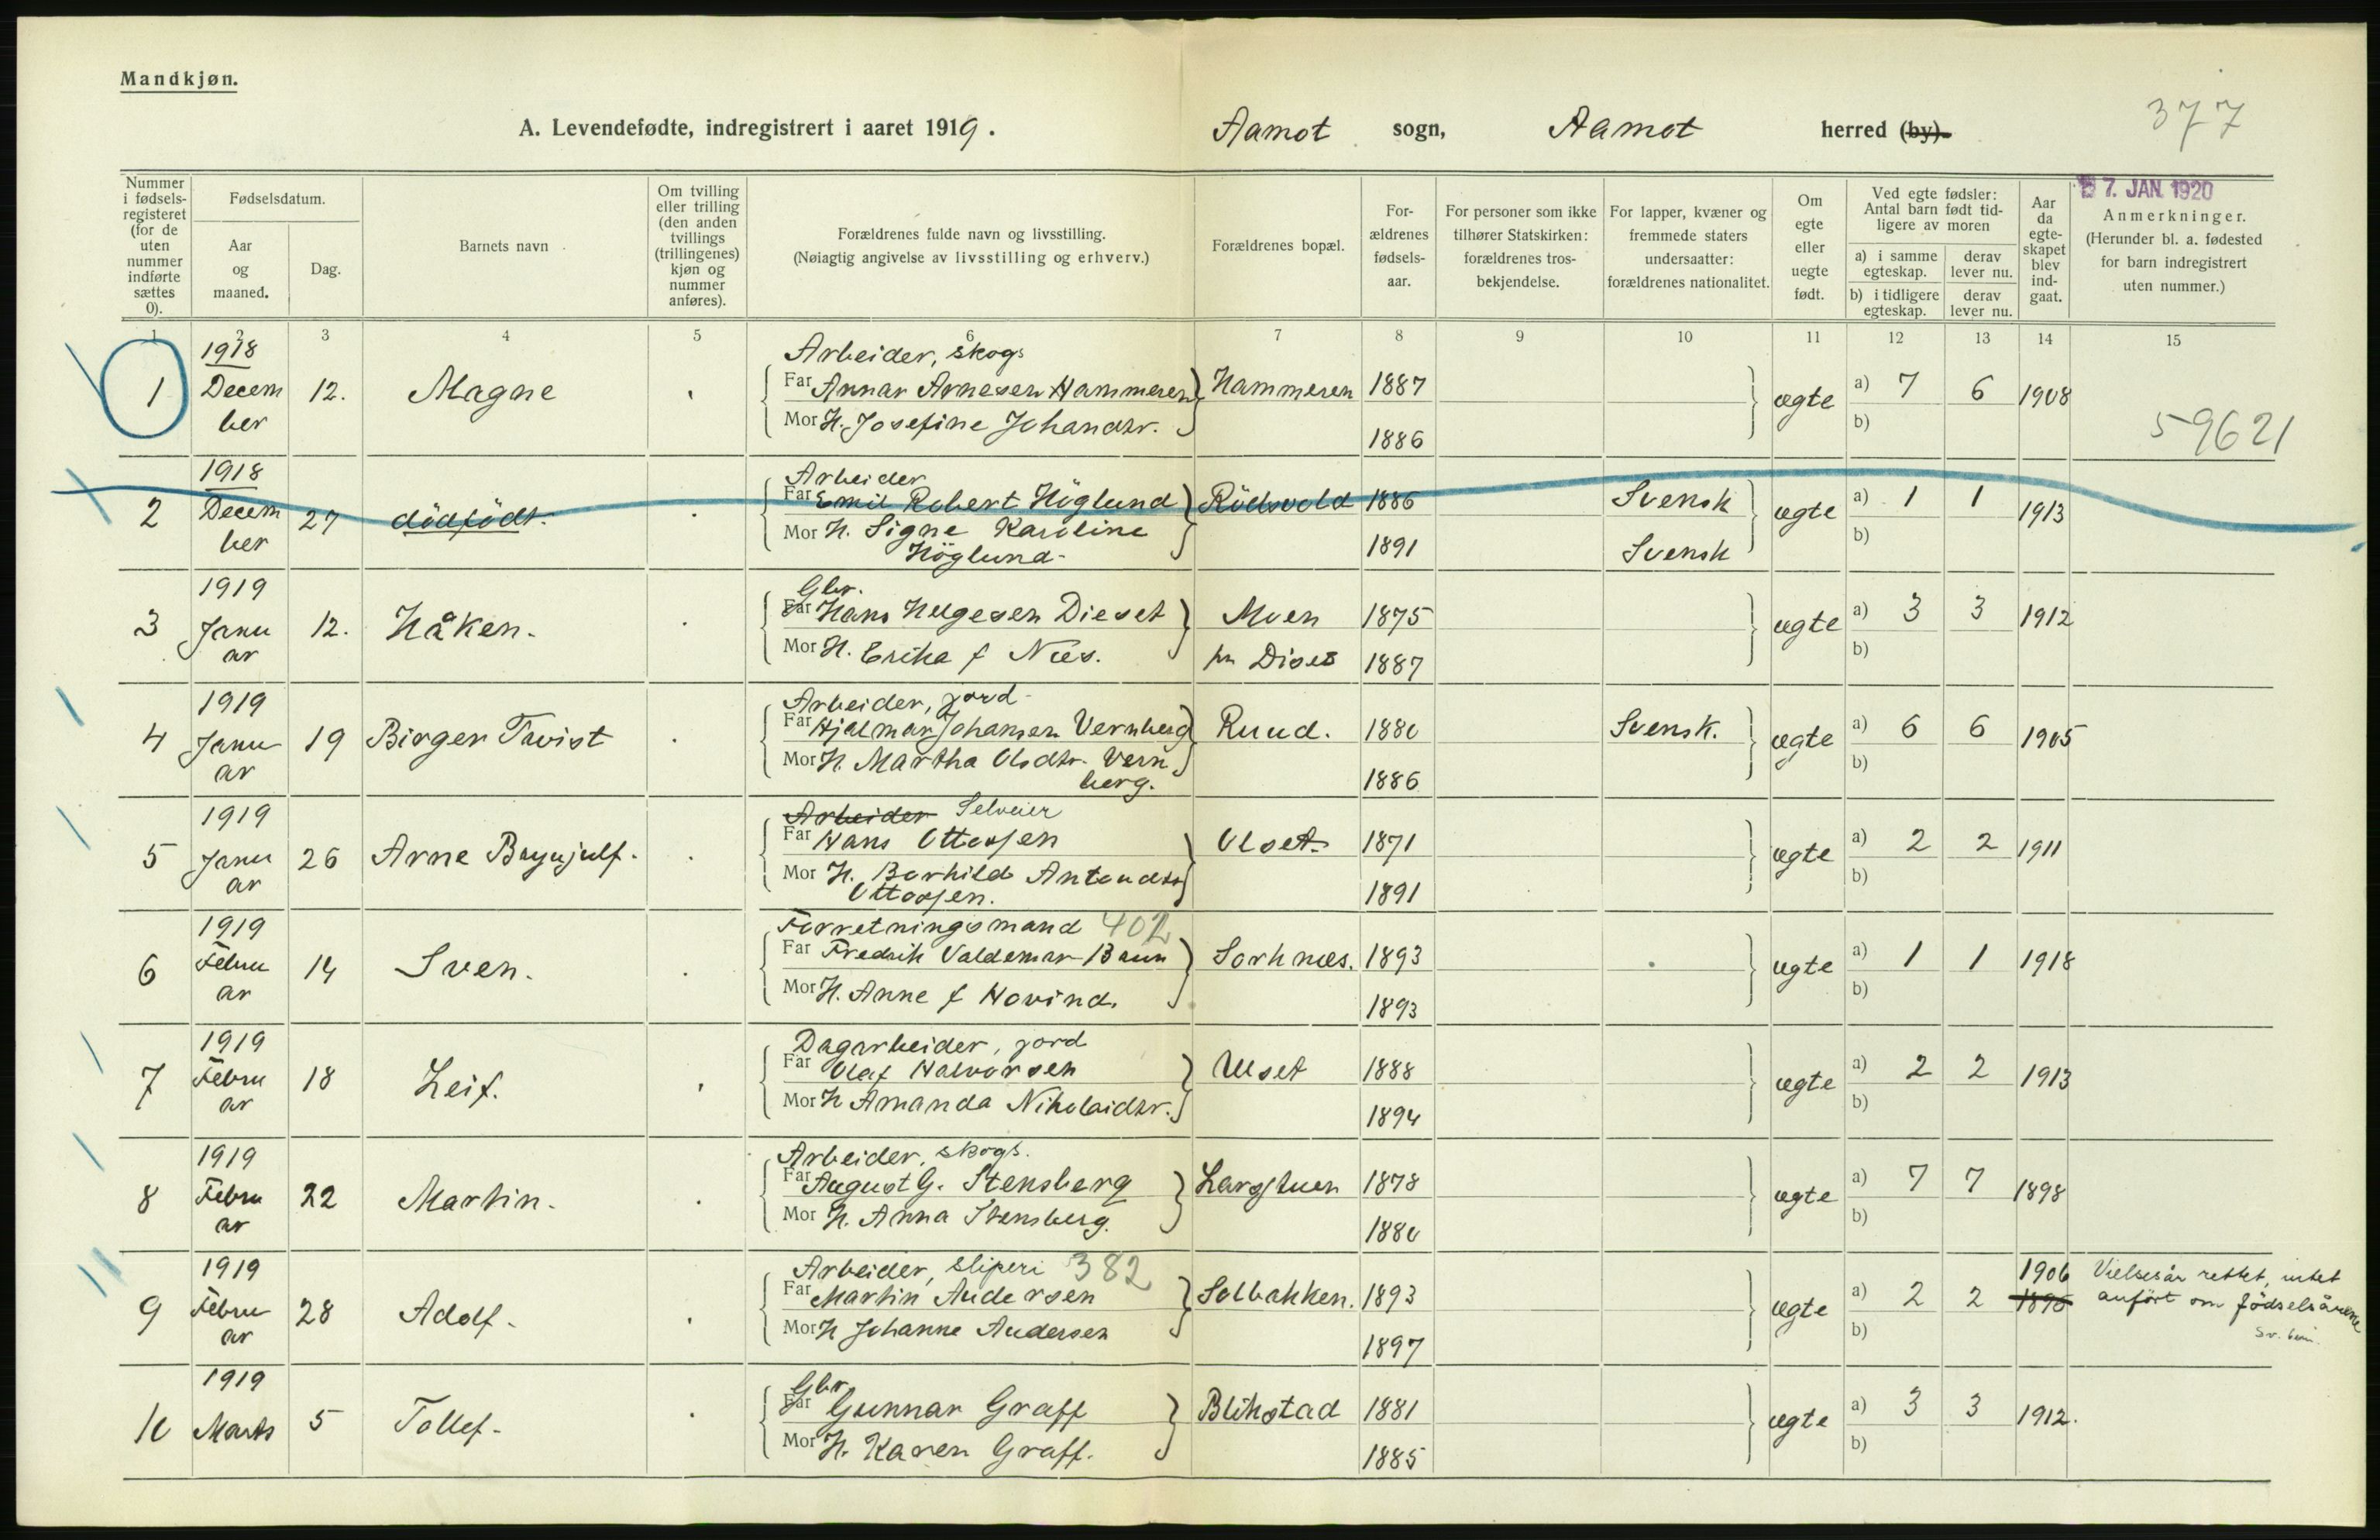 Mandkjøn.
A. Levendefødte, indregistrert i aaret 1919. Aamot sogn, Aamot herred (by). 377
7. JAN. 1920
Nummer i fødselsregisteret (for de uten nummer indførte sættes 0).
Fødselsdatum.
Aar og maaned.
Dag.
Barnets navn
Om tvilling eller trilling (den anden tvillings (trillingenes) kjøn og nummer anføres).
Forældrenes fulde navn og livsstilling.
(Nøiagtig angivelse av livsstilling og erhverv.)
Forældrenes bopæl.
Forældrenes fødselsaar.
For personer som ikke tilhører Statskirken: forældrenes trosbekjendelse.
For lapper, kvæner og fremmede staters undersaatter: forældrenes nationalitet.
Om egte eller uegte født.
Ved egte fødsler: Antal barn født tidligere av moren
a) i samme egteskap. derav lever nu.
b) i tidligere egteskap. derav lever nu.
Aar da egteskapet blev indgaat.
Anmerkninger.
(Herunder bl. a. fødested for barn indregistrert uten nummer.)
1 2 3 4 5 6 7 8 9 10 11 12 13 14 15
1918 Arbeider, skogs
1 Decem 12. Magne Far Annar Arnesen Hammeren Hammeren 1887 ægte a) 7 6 1908
ber Mor H. Josefine Johandtr. 1886 b) 59621
1918 Arbeider
2 Decem 27 dödfödt. Far Emil Robert Höglund Rödsvold 1886 Svensk ægte a) 1 1 1913
ber Mor H. Signe Karoline 1891 Svensk b)
Höglund
1919 Gbr.
3 Janu 12. Håken. Far Hans Helgesen Dieset Moen 1875 ægte a) 3 3 1912
ar Mor H. Erika f Næs. 1887 b)
1919 Arbeider, jord
4 Janu 19 Birger Tavist Far Hjalmar Johansen Vernberg Ruud. 1880 Svensk. ægte a) 6 6 1905
ar Mor H. Martha Olsdtr. Vern 1886 b)
berg.
1919 Arbeider Selveier
5 Janu 26 Arne Brynjulf. Far Hans Ottosen Olset 1871 ægte a) 2 2 1911
ar Mor H. Borhild Antondtr 1891 b)
Ottosen.
1919 Forretningsmand 402
6 Febru 14 Sven. Far Fredrik Valdemar Baun Sorknæs. 1893 ægte a) 1 1 1918
ar Mor H. Anne f Hovind. 1893 b)
1919 Dagarbeider, jord
7 Febru 18 Leif. Far Olaf Halvorsen Ulset 1888 ægte a) 2 2 1913
ar Mor H Amanda Nikolaidtr. 1894 b)
1919 Arbeider, skogs.
8 Febru 22 Martin. Far August G. Stensberg Larsstuen 1878 ægte a) 7 7 1898
ar Mor H. Anna Stensberg. 1880 b)
1919 Arbeider, sliperi 382 1906 Vielsesår rettet, intet
9 Febru 28 Adolf. Far Martin Andersen Solbakken. 1893 ægte a) 2 2 1896 anført om fødselsårene
ar Mor H Johanne Andersen 1897 b)
1919 Gbr
10 Marts 5 Tollef. Far Gunnar Graff Blikstad 1881 ægte a) 3 3 1912.
Mor H. Karen Graff. 1885 b)